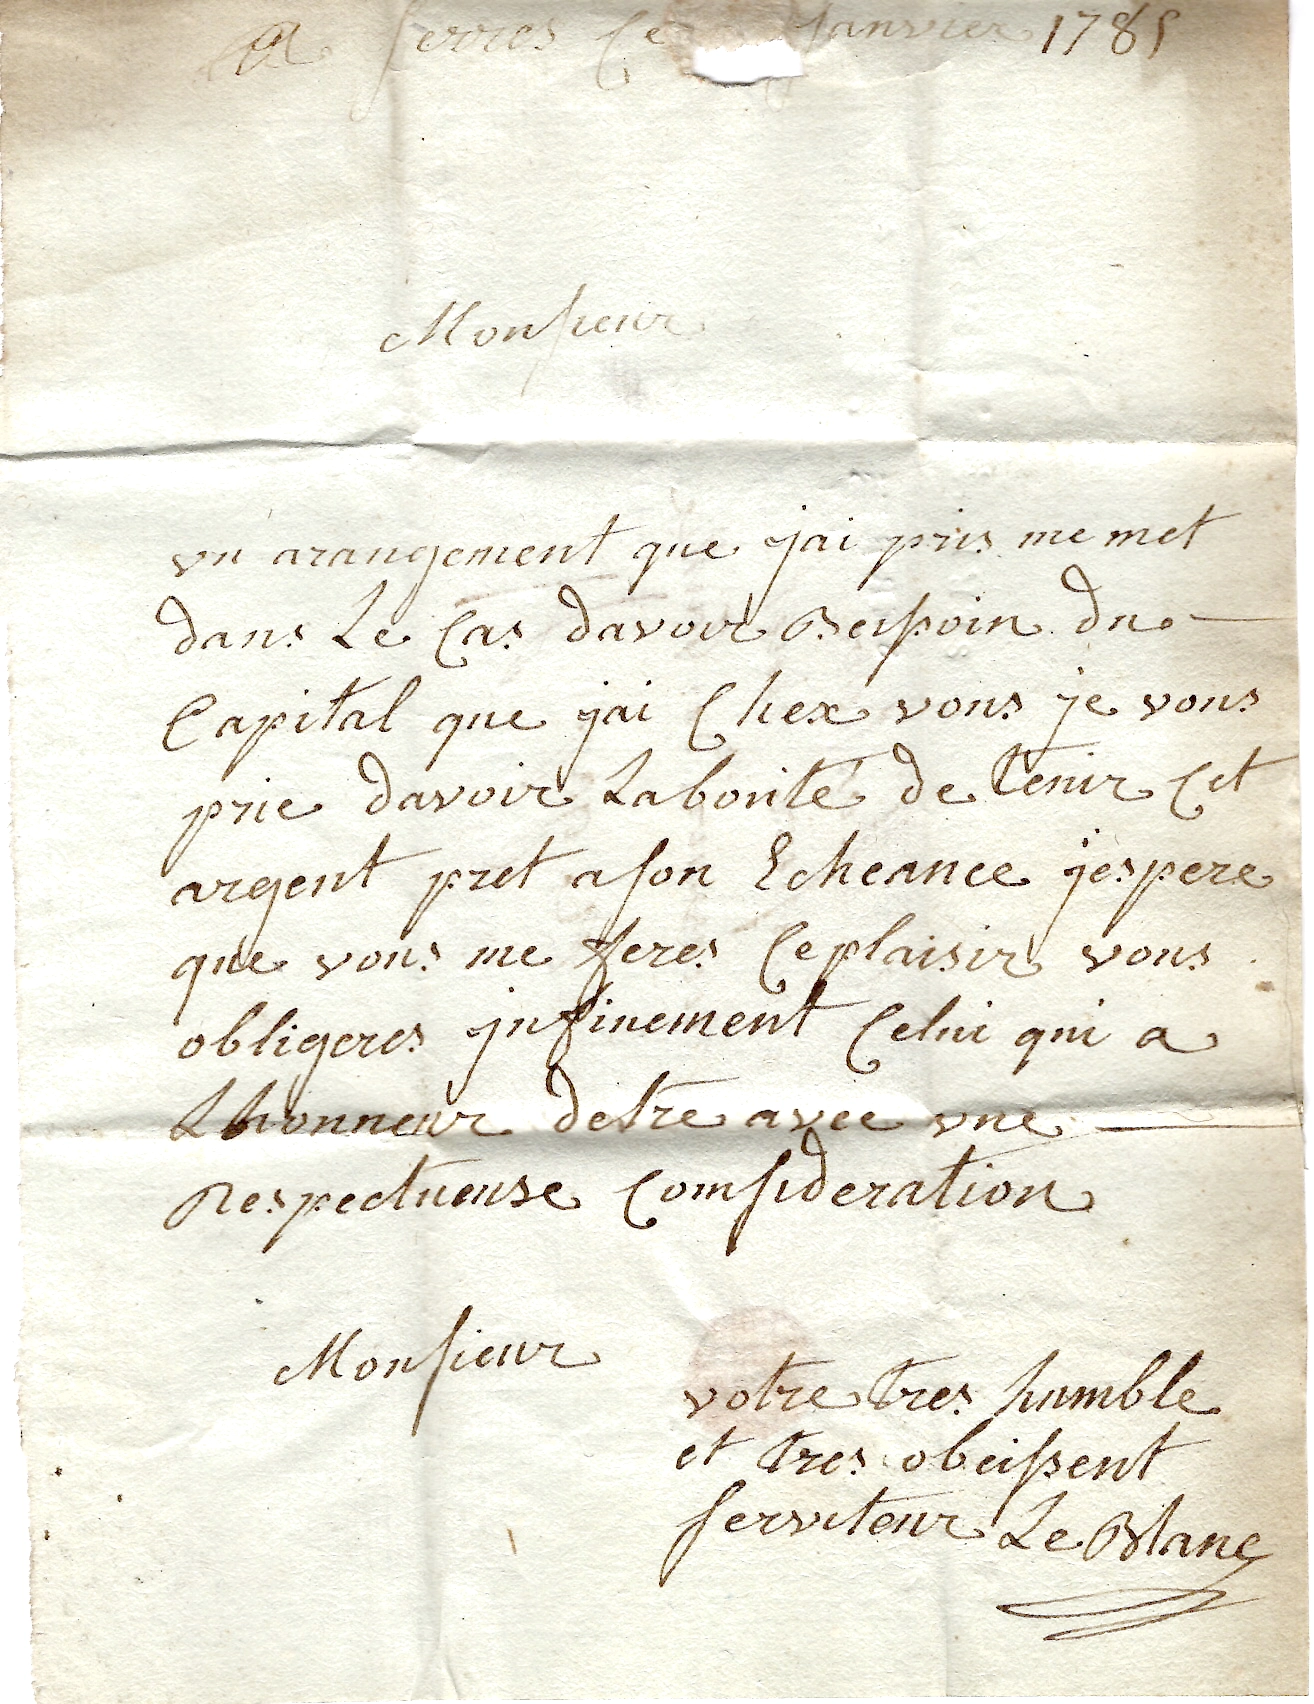 a serres ce janvier 1785
Monsieur
un arangement que jai pris me met
dans Le Cas davoir Beisoin du
Capital que jai Chex vous je vous
prie davoir Labonté de tenir Cet
argent pret a son Echeance jespere
que vous me feres Ceplaisir vous
obligeres jnfinement Celui qui a
Lhonneur detre avec une
Respectueuse Comsideration
Monsieur
votre tres humble
et tres obeissent
serviteur Le Blanc